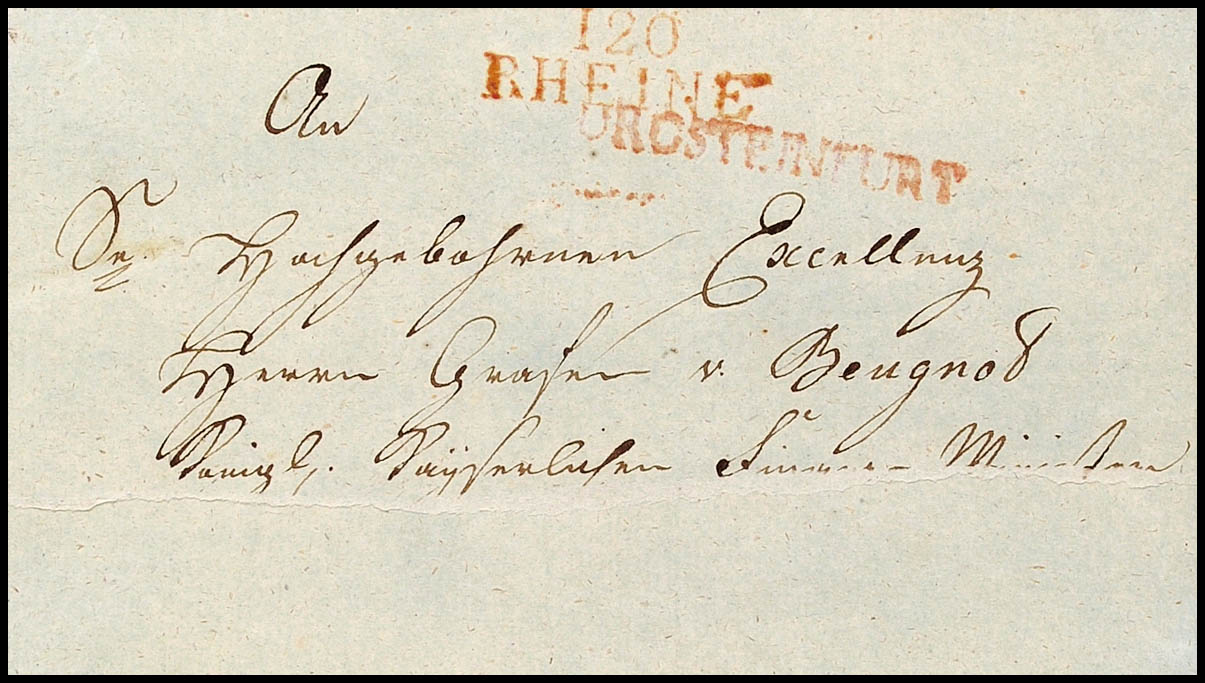 120
RHEINE
URGSTEINFURT
An
Sr. Hochgebohrnen Excellenz
Herrn Grafen v. Beugnot
Königl. Kayserlichen Finanz Minister